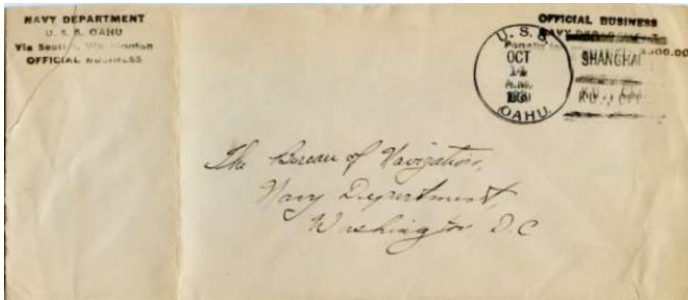 NAVY DEPARTMENT
U. S. S. OAHU
Via Seattle, Washington
OFFICIAL BUSINESS
OFFICIAL BUSINESS
NAVY DEPARTMENT
Penalty
U. S. S.
OCT
14
A.M.
OAHU.
SHANGHAI
The Bureau of Navigation,
Navy Department,
Washington D.C